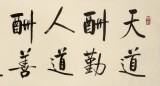 天道
酬勤
人道
酬善